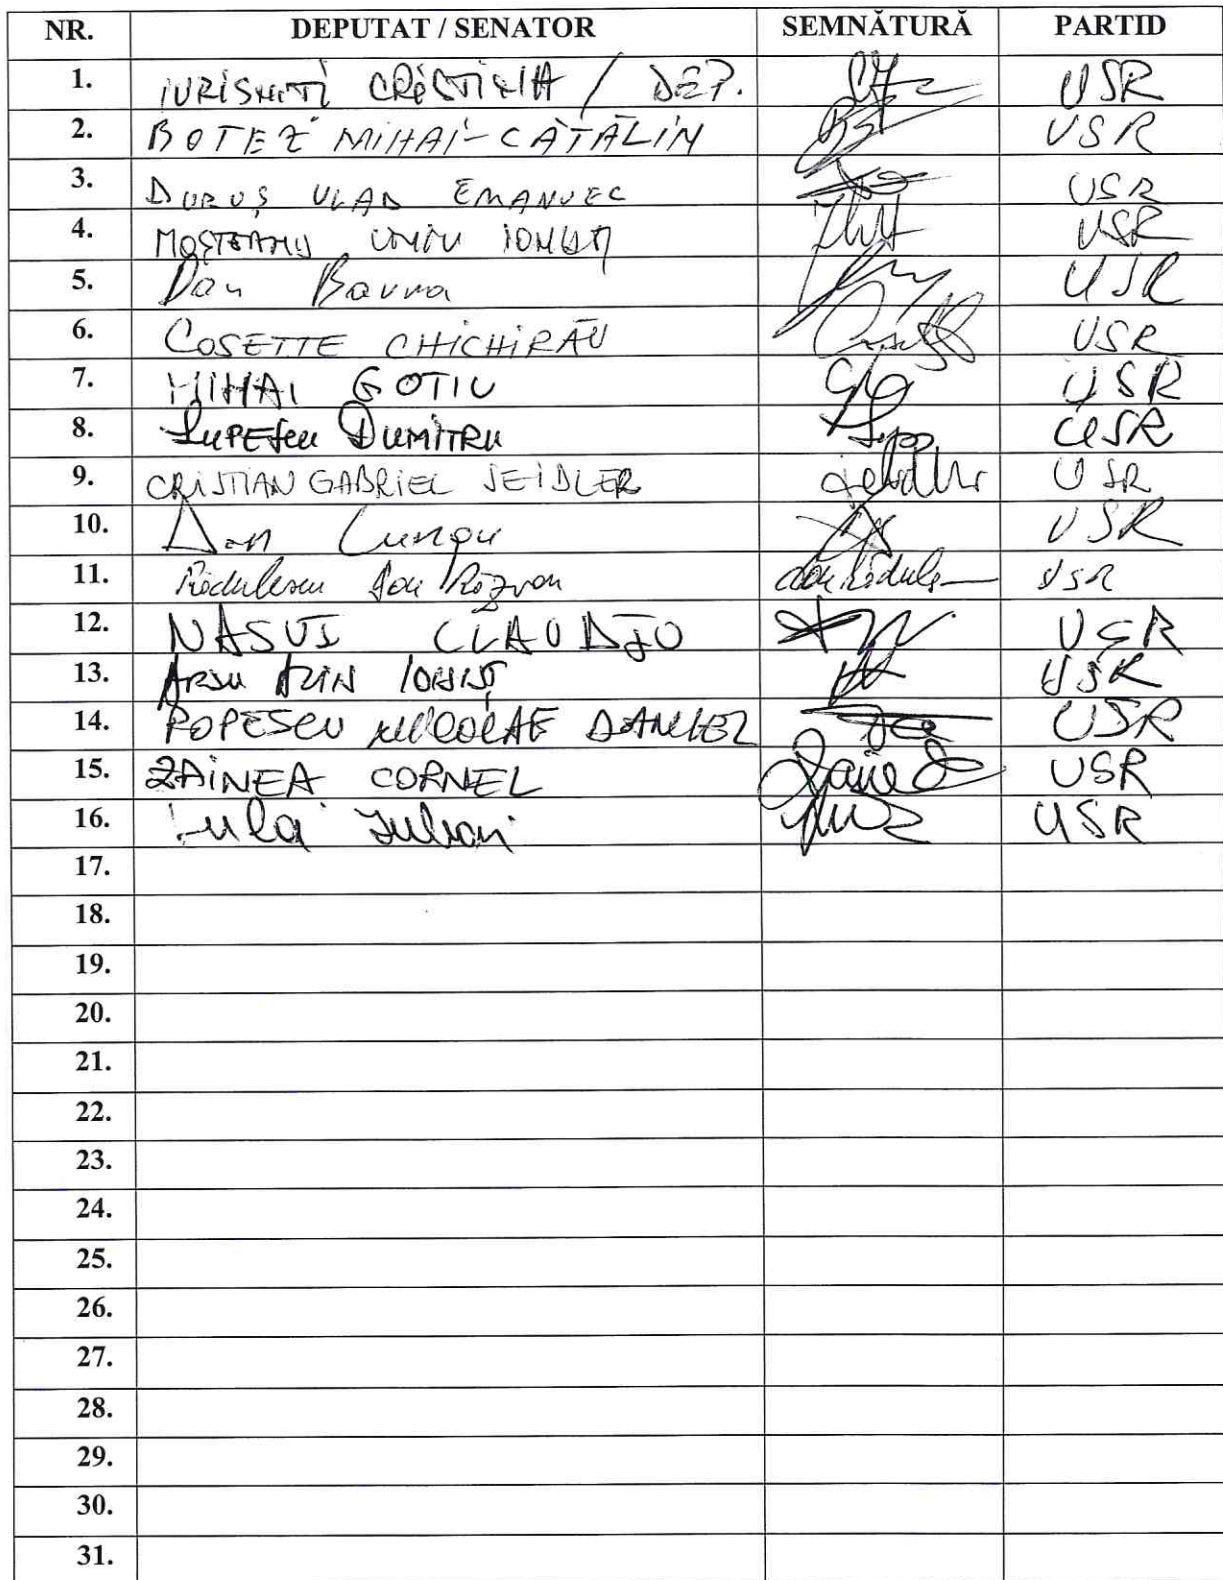 NR. DEPUTAT / SENATOR SEMNĂTURĂ PARTID
1. IURISNITI CRISTINA / DEP. USR
2. BOTEZ MIHAI-CĂTĂLIN USR
3. DURUȘ VLAD EMANUEL USR
4. MOȘTEANU USR
5. Dan Barna USR
6. COSETTE CHICHIRĂU USR
7. MIHAI GOTIU USR
8. LUPESCU DUMITRU USR
9. CRISTIAN GABRIEL SEIDLER USR
10. Dan Lungu USR
11. Rădulescu Dan Răzvan USR
12. NASUI CLAUDIU USR
13. IONUȚ USR
14. POPESCU NICOLAE DANIEL USR
15. ZAINEA CORNEL USR
16. Iulian USR
17.
18.
19.
20.
21.
22.
23.
24.
25.
26.
27.
28.
29.
30.
31.